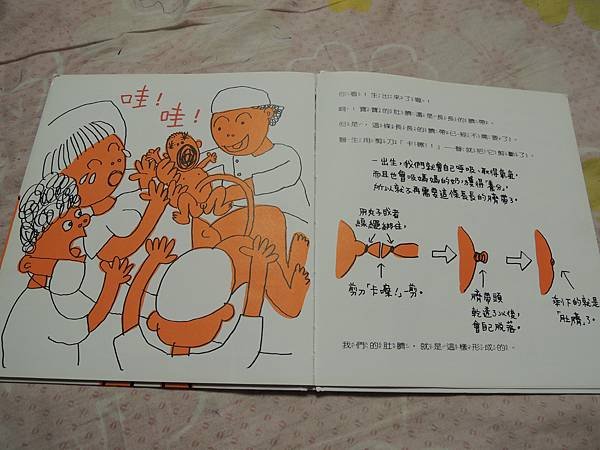 哇！
哇！
你看！生出來了喔！
咦！寶寶的肚臍還是長長的臍帶。
但是，這條長長的臍帶已經不需要了，
醫生用剪刀「卡嚓！」一聲就把它剪斷了。
一出生，我們就會自己呼吸、取得氧氣，
而且也會吸媽媽的奶，獲得「養分」，
所以就不再需要這條長長的臍帶了。
用夾子或者
線繩綁住，
剪刀「卡嚓！」一剪。
臍帶頭
乾透了以後，
會自己脫落。
剩下的就是
「肚臍」了。
我們的肚臍，就是這樣形成的。